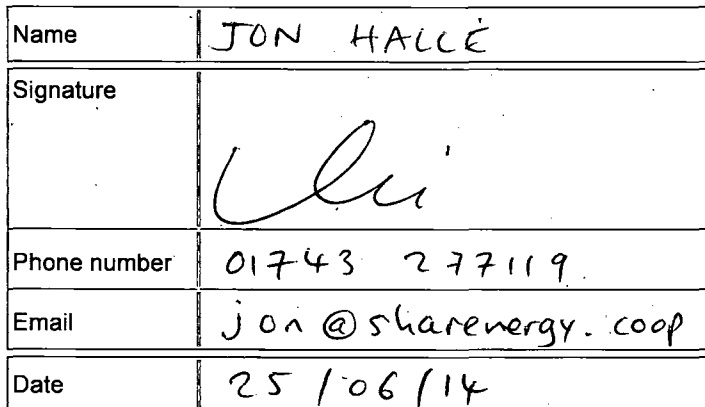 Name JON HALLÉ
Signature
Phone number 01743 277119
Email jon@sharenergy.coop
Date 25/06/14